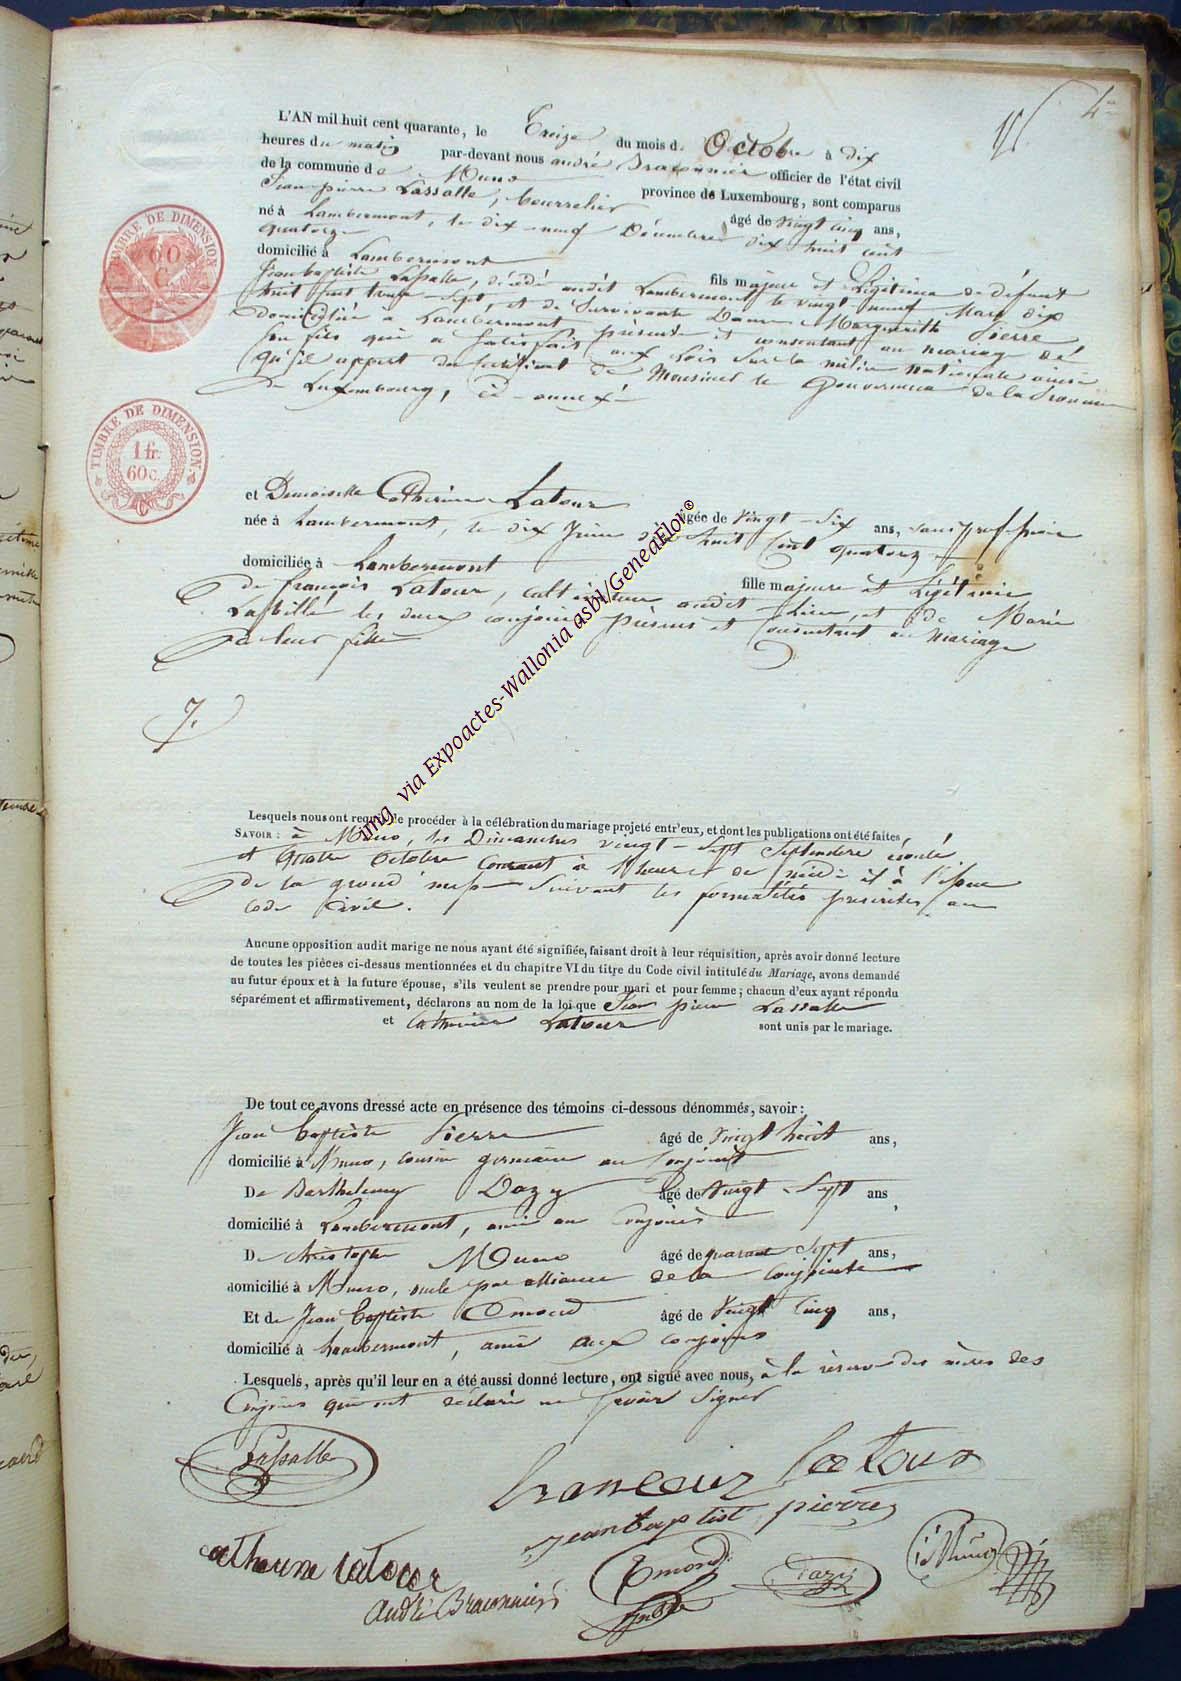 4
L'AN mil huit cent quarante, le Treize du mois d. Octobre à dix
heures du matin par-devant nous andré Braconnier officier de l'état civil
de la commune de Muno province de Luxembourg, sont comparus
Jean pierre Lassalle, bourrelier âgé de vingt cinq ans,
né à Lambermont, le dix-neuf Décembre dix huit cent
quatorze
domicilié à Lambermont fils majeur et Légitime de défunt
Jean baptiste Lassalle, décédé audit Lambermont le vingt neuf Mars dix
huit cent trente-Sept, et de Survivante Dame Marguerith Pierre
domiciliée a Lambermont présente et consentant au mariage de
Son fils qui a Satisfait aux lois Sur la milice nationale ainsi
qu'il appert du Certificat de Monsieur le Gouverneur de la Province
de Luxembourg, ci-annexé
TIMBRE DE DIMENSION
60
C.
TIMBRE DE DIMENSION
1 fr.
60 c.
et Demoiselle Catherine Latour
née à Lambermont, le dix Juin dix huit Cent quatorze âgée de Vingt-Six ans, sans profession
domiciliée à Lambermont fille majeure et Légitime
de françois Latour, cultivateur audit Lieu, et de Marie
les deux conjoints présens et Consentant au mariage
de leur fille
7.
Lesquels nous ont requis de procéder à la célébration du mariage projeté entr'eux, et dont les publications ont été faites,
SAVOIR : à Muno, les Dimanches vingt-Sept Septembre écoulé
et quatre Octobre Courant à l'heure de midi et à l'issue
de la grand'messe Suivant les formalités prescrites au
Code Civil.
Aucune opposition audit marige ne nous ayant été signifiée, faisant droit à leur réquisition, après avoir donné lecture
de toutes les pièces ci-dessus mentionnées et du chapitre VI du titre du Code civil intitulé du Mariage, avons demandé
au futur époux et à la future épouse, s'ils veulent se prendre pour mari et pour femme ; chacun d'eux ayant répondu
séparément et affirmativement, déclarons au nom de la loi que Jean pierre Lassalle
et Catherine Latour sont unis par le mariage.
De tout ce avons dressé acte en présence des témoins ci-dessous dénommés, savoir :
Jean Baptiste Pierre âgé de Vingt huit ans,
domicilié à Muno, cousin germain au Conjoint
De Barthelemy Dazy âgé de Vingt-Sept ans
domicilié à Lambermont, ami au Conjoint
De christophe Muno âgé de quarante Sept ans,
domicilié à Muno, oncle par alliance de la Conjointe
Et de Jean Baptiste Emond âgé de Vingt Cinq ans,
domicilié à Lambermont, ami aux conjoints
Lesquels, après qu'il leur en a été aussi donné lecture, ont signé avec nous, à la réserve des mères des
Conjoins qui ont déclaré ne Savoir Signer
Lassalle
francoiz LaTour
jean baptist pierre
catherine latour
Emond
Dazy
Muno
André Braconnier
img via Expoactes-Wallonia asbl/GeneaFlor©